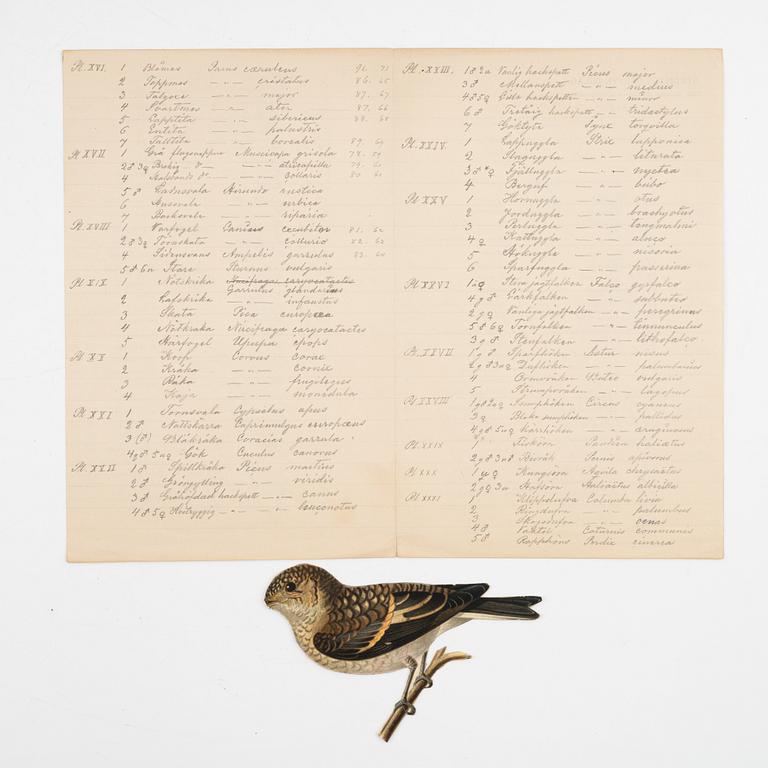 Pl. XVI. 1 Blåmes Parus cœruleus 92. 71
2 Toppmes —"— cristatus 86. 65
3 Talgoxe —"— major 87. 67
4 Svartmes —"— ater 87. 66
5 Lapptita —"— sibericus 88. 68
6 Entita —"— palustris
7 Talltita —"— borealis 89. 69
Pl. XVII 1 Grå flugsnappare Muscicapa grisola 78. 59
2♂ 3♀ Brokig —"— —"— atricapilla 79.
4 Halsbands d:o —"— collaris 80.
5♂ Ladusvala Hirundo rustica
6 Hussvala —"— urbica
7 Backsvala —"— riparia
Pl. XVIII 1 Varfogel Lanius excubitor 81. 62
2♂ 3♀ Törnskata —"— collurio 82. 63
4 Sidensvans Ampelis garrulus 83. 64
5♂ 6u Stare Sturnus vulgaris
Pl. XIX 1 Nötskrika Nucifraga caryocatactes
Garrulus glandarius
2 Lafskrika —"— infaustus
3 Skata Pica europæa
4 Nötkråka Nucifraga caryocatactes
5 Härfogel Upupa epops
Pl. XX 1 Korp Corvus corax
2 Kråka —"— cornix
3 Råka —"— frugilegus
4 Kaja —"— monedula
Pl. XXI 1 Tornsvala Cypselus apus
2♂ Nattskärra Caprimulgus europæus
3 (♂) Blåkråka Coracias garrula
4♀♂ 5u♀ Gök Cuculus canorus
Pl. XXII 1♂ Spillkråka Picus martius
2♂ Gröngyling —"— viridis
3♂ Gråhöfdad hackspett —"— canus
4♂ 5♀ Hvitryggig —"— —"— leuconotus
Pl. XXIII. 1♂ 2u Vanlig hackspett Picus major
3♂ Mellanspett —"— medius
4♂ 5♀ Lilla hackspetten —"— minor
6♂ Tretåig hackspett —"— tridactylus
7 Göktyta Jynx torquilla
Pl. XXIV. 1 Lappuggla Strix lapponica
2 Slaguggla —"— liturata
3♂ ♀ Fjälluggla —"— nyctea
4 Berguf —"— bubo
Pl. XXV 1 Hornuggla —"— otus
2 Jorduggla —"— brachyotus
3 Perluggla —"— tengmalmi
4♀ Kattuggla —"— aluco
5 Hökuggla —"— nisoria
6 Sparfuggla —"— passerina
Pl. XXVI 1u♀ Stora jagtfalken Falco gyrfalco
4♀♂ Lärkfalken —"— subbuteo
2♀♀ Vanliga jagtfalken —"— peregrinus
5♂ 6♀ Tornfalken —"— tinnunculus
3♀♂ Stenfalken —"— lithofalco
Pl. XXVII 1♀♂ Sparfhöken Astur nisus
2♀♂ 3u♀ Dufhöken —"— palumbarius
4 Ormvråken Buteo vulgaris
5 Strumpvråken —"— lagopus
Pl. XXVIII 1♀♂ 2u♀ Kärrhöken Circus cyaneus
3♀ Bleka kärrhöken —"— pallidus
4♀♂ 5♀u Kärrhöken —"— æruginosus
Pl. XXIX 1 Fiskörn Pandion haliætus
2♀♂ 3u♂ Bivråk Pernis apivorus
Pl. XXX 1♀ Kungsörn Aquila chrysaetus
2♀♀ 3u Hafsörn Haliaëtus albicilla
Pl. XXXI 1 Klippdufva Columba livia
2 Ringdufva —"— palumbus
3 Skogsdufva —"— oenas
4♂ Vaktel Coturnix communis
5♂ Rapphöns Perdix cinerea